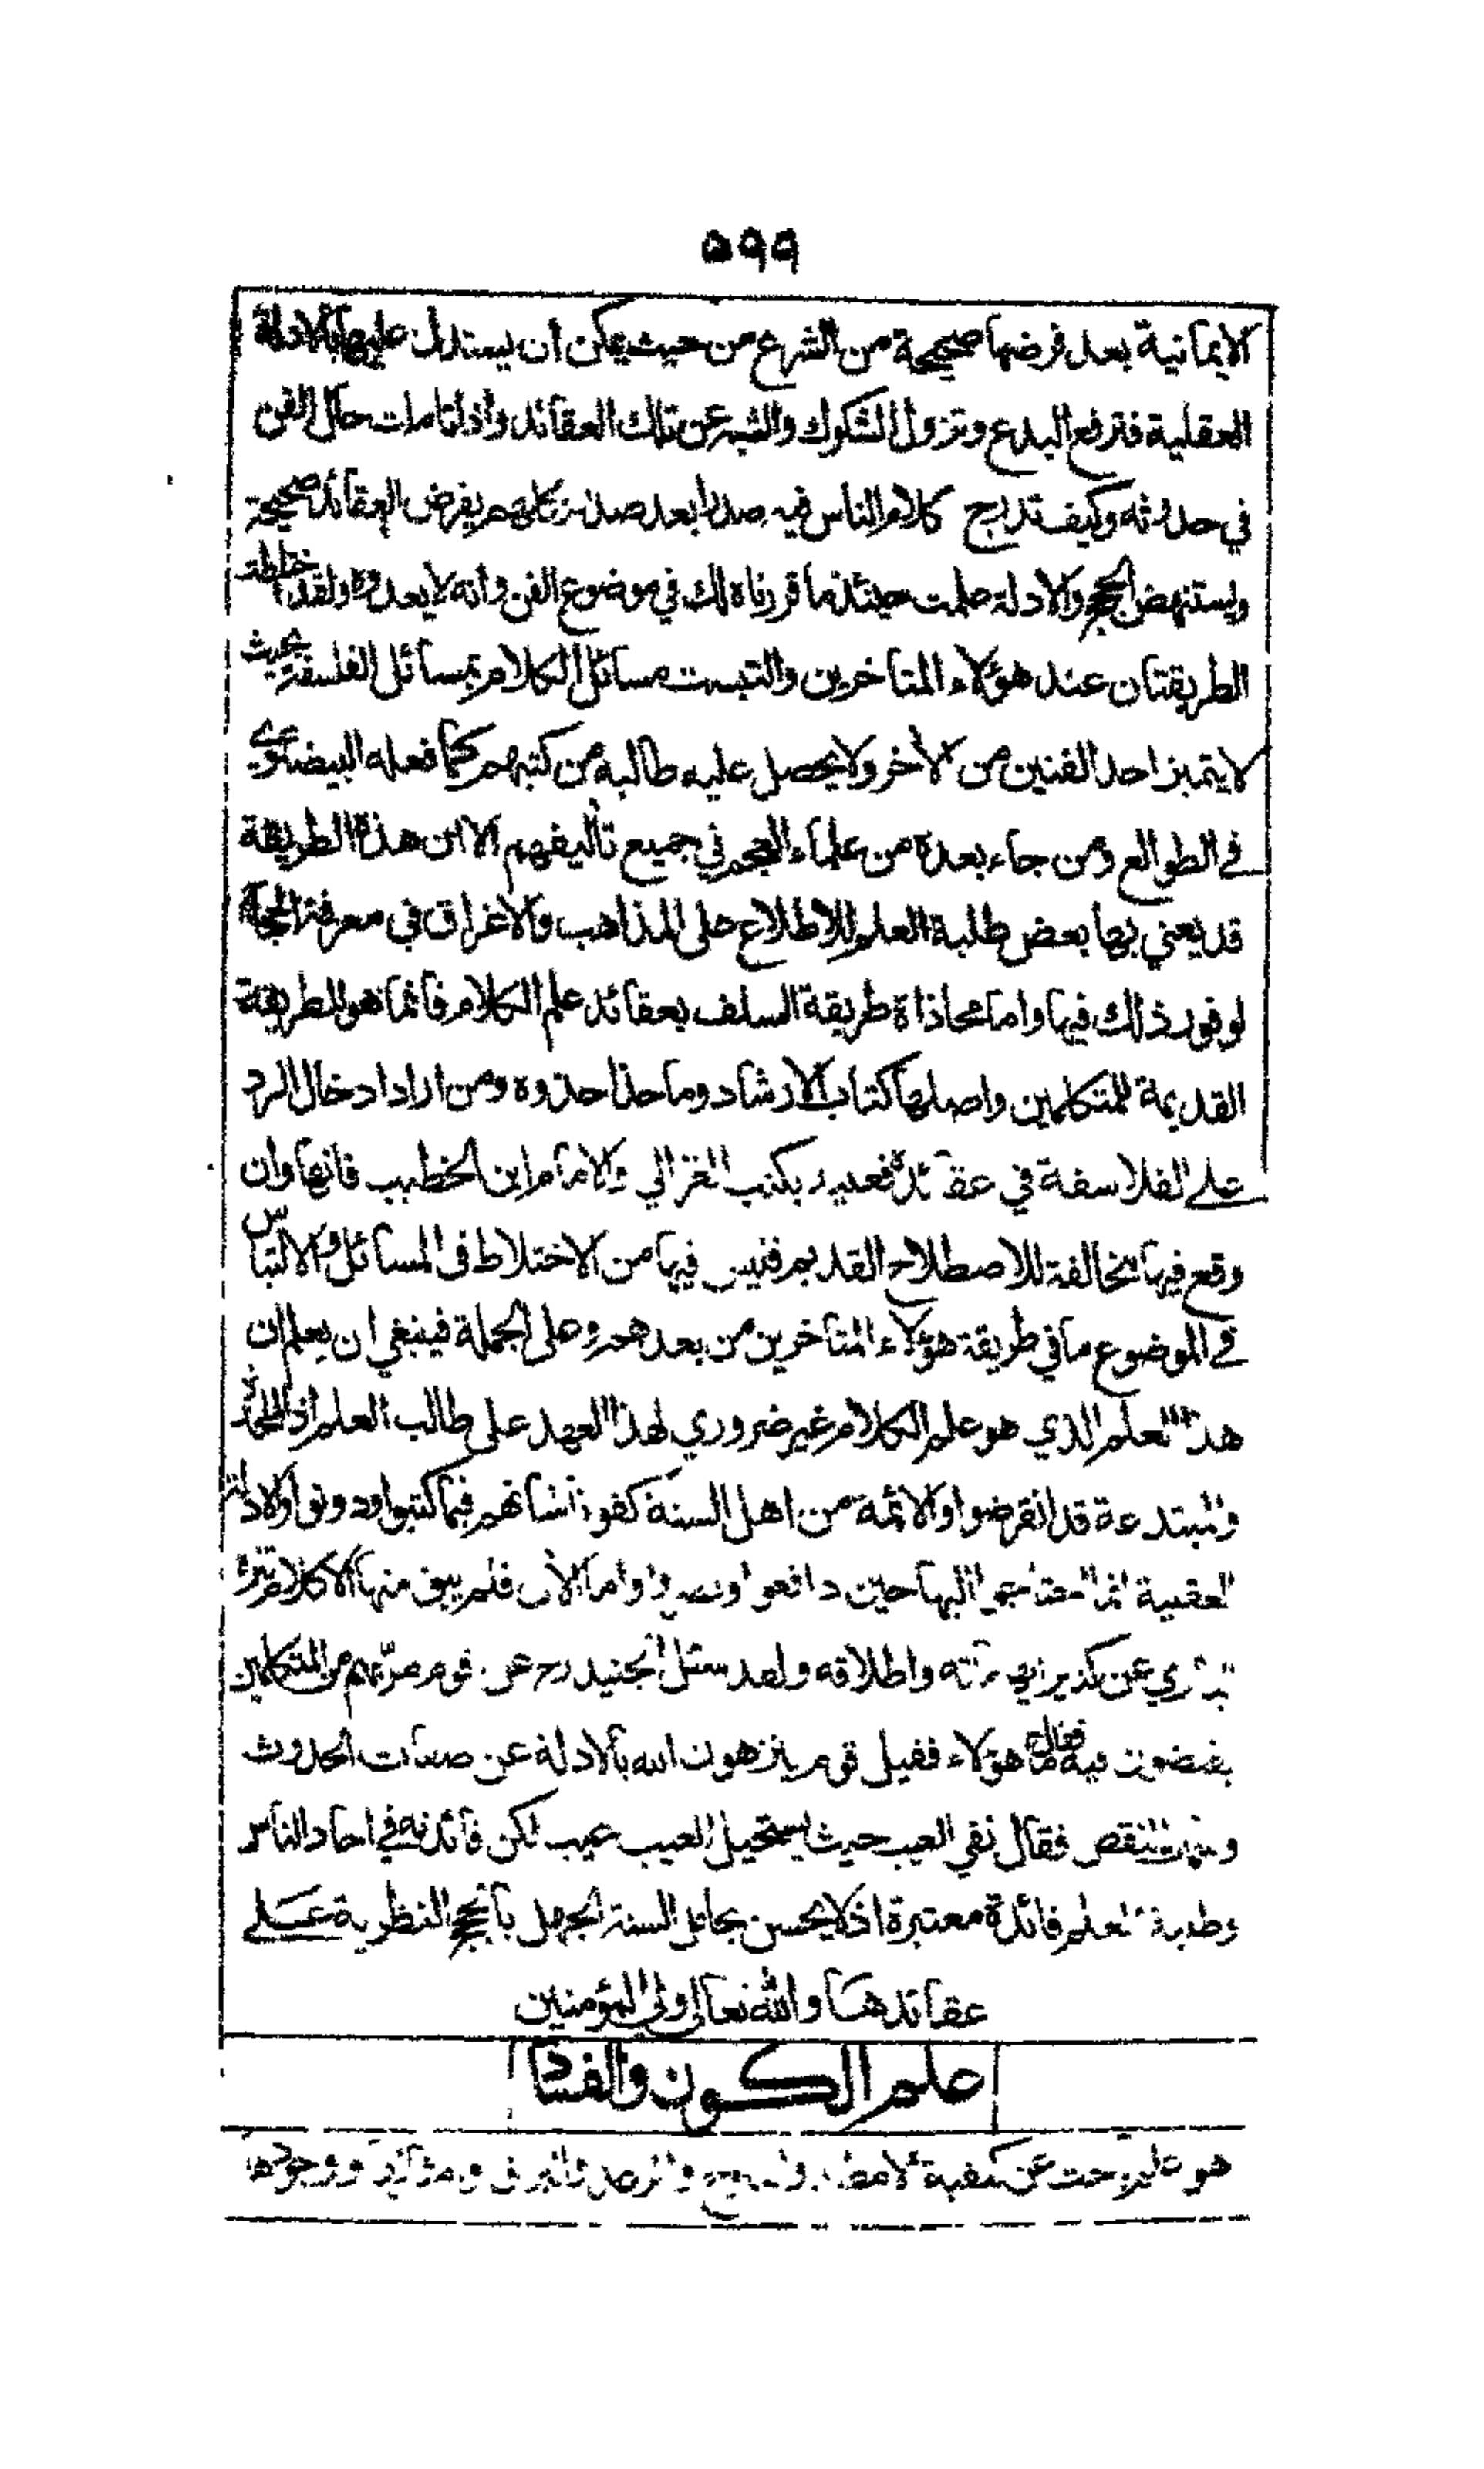 ٥٩٩
الايمانية بعد فرضها صحيحة من الشرع من حيث يمكن أن يستدل عليها بالادلة
العقلية فترفع البدع وتزول الشكوك والشبه عن تلك العقائد واذا تاملت حال الفن
في حدوثه وكيف تدرج كلام الناس فيه صدرا بعد صدر وكلهم يفرض العقائد صحيحة
ويستنهض الحجج والادلة علمت حينئذ ما قررناه لك في موضوع الفن وانه لا يعدوه ولقد اختلطت
الطريقتان عند هؤلاء المتاخرين والتبست مسائل الكلام بمسائل الفلسفة بحيث
لا يتميز احد الفنين من الأخر ولا يحصل عليه طالبه من كتبهم كما فعله البيضاوي
في الطوالع ومن جاء بعده من علماء العجم في جميع تأليفهم الا ان هذه الطريقة
قد يعني بها بعض طلبة العلم للاطلاع على المذاهب والاغراق في معرفة الحجاج
لوفور ذلك فيها واما محاذاة طريقة السلف بعقائد علم الكلام فانما هو الطريقة
القديمة للمتكلمين واصلها كتاب الارشاد وما حذا حذوه ومن اراد ادخال الرد
على الفلاسفة في عقائده فعليه بكتب الغزالي والامام ابن الخطيب فانها وان
وقع فيها مخالفة للاصطلاح القديم فليس فيها من الاختلاط في المسائل والالتباس
في الموضوع ما في طريقة هؤلاء المتاخرين من بعدهم وعلى الجملة فينبغي ان يعلم ان
هذا العلم الذي هو علم الكلام غير ضروري لهذا العهد على طالب العلم اذ الملحدة
والمبتدعة قد انقرضوا والائمة من اهل السنة كفونا شانهم فيما كتبوا ودونوا والادلة
العقلية انما احتاجوا اليها حين دافعوا ونصروا واما الأن فلم يبق منها الا كلام تنزه
الباري عن كثير ايهاماته واطلاقه ولقد سئل الجنيد رح عن قوم مر بهم من المتكلمين
يفيضون فيه فقال ما هؤلاء فقيل قوم ينزهون الله بالادلة عن صفات الحدوث
وسمات النقص فقال نفي العيب حيث يستحيل العيب عيب لكن فائدته في احاد الناس
وطلبة العلم فائدة معتبرة اذ لا يحسن بحامل السنة الجهل بالحجج النظرية على
عقائدها والله تعالى ولي المؤمنين
علم الكون والفساد
هو علم يبحث عن كيفية الامطار والثلوج والرعد والبرق و ووجودها